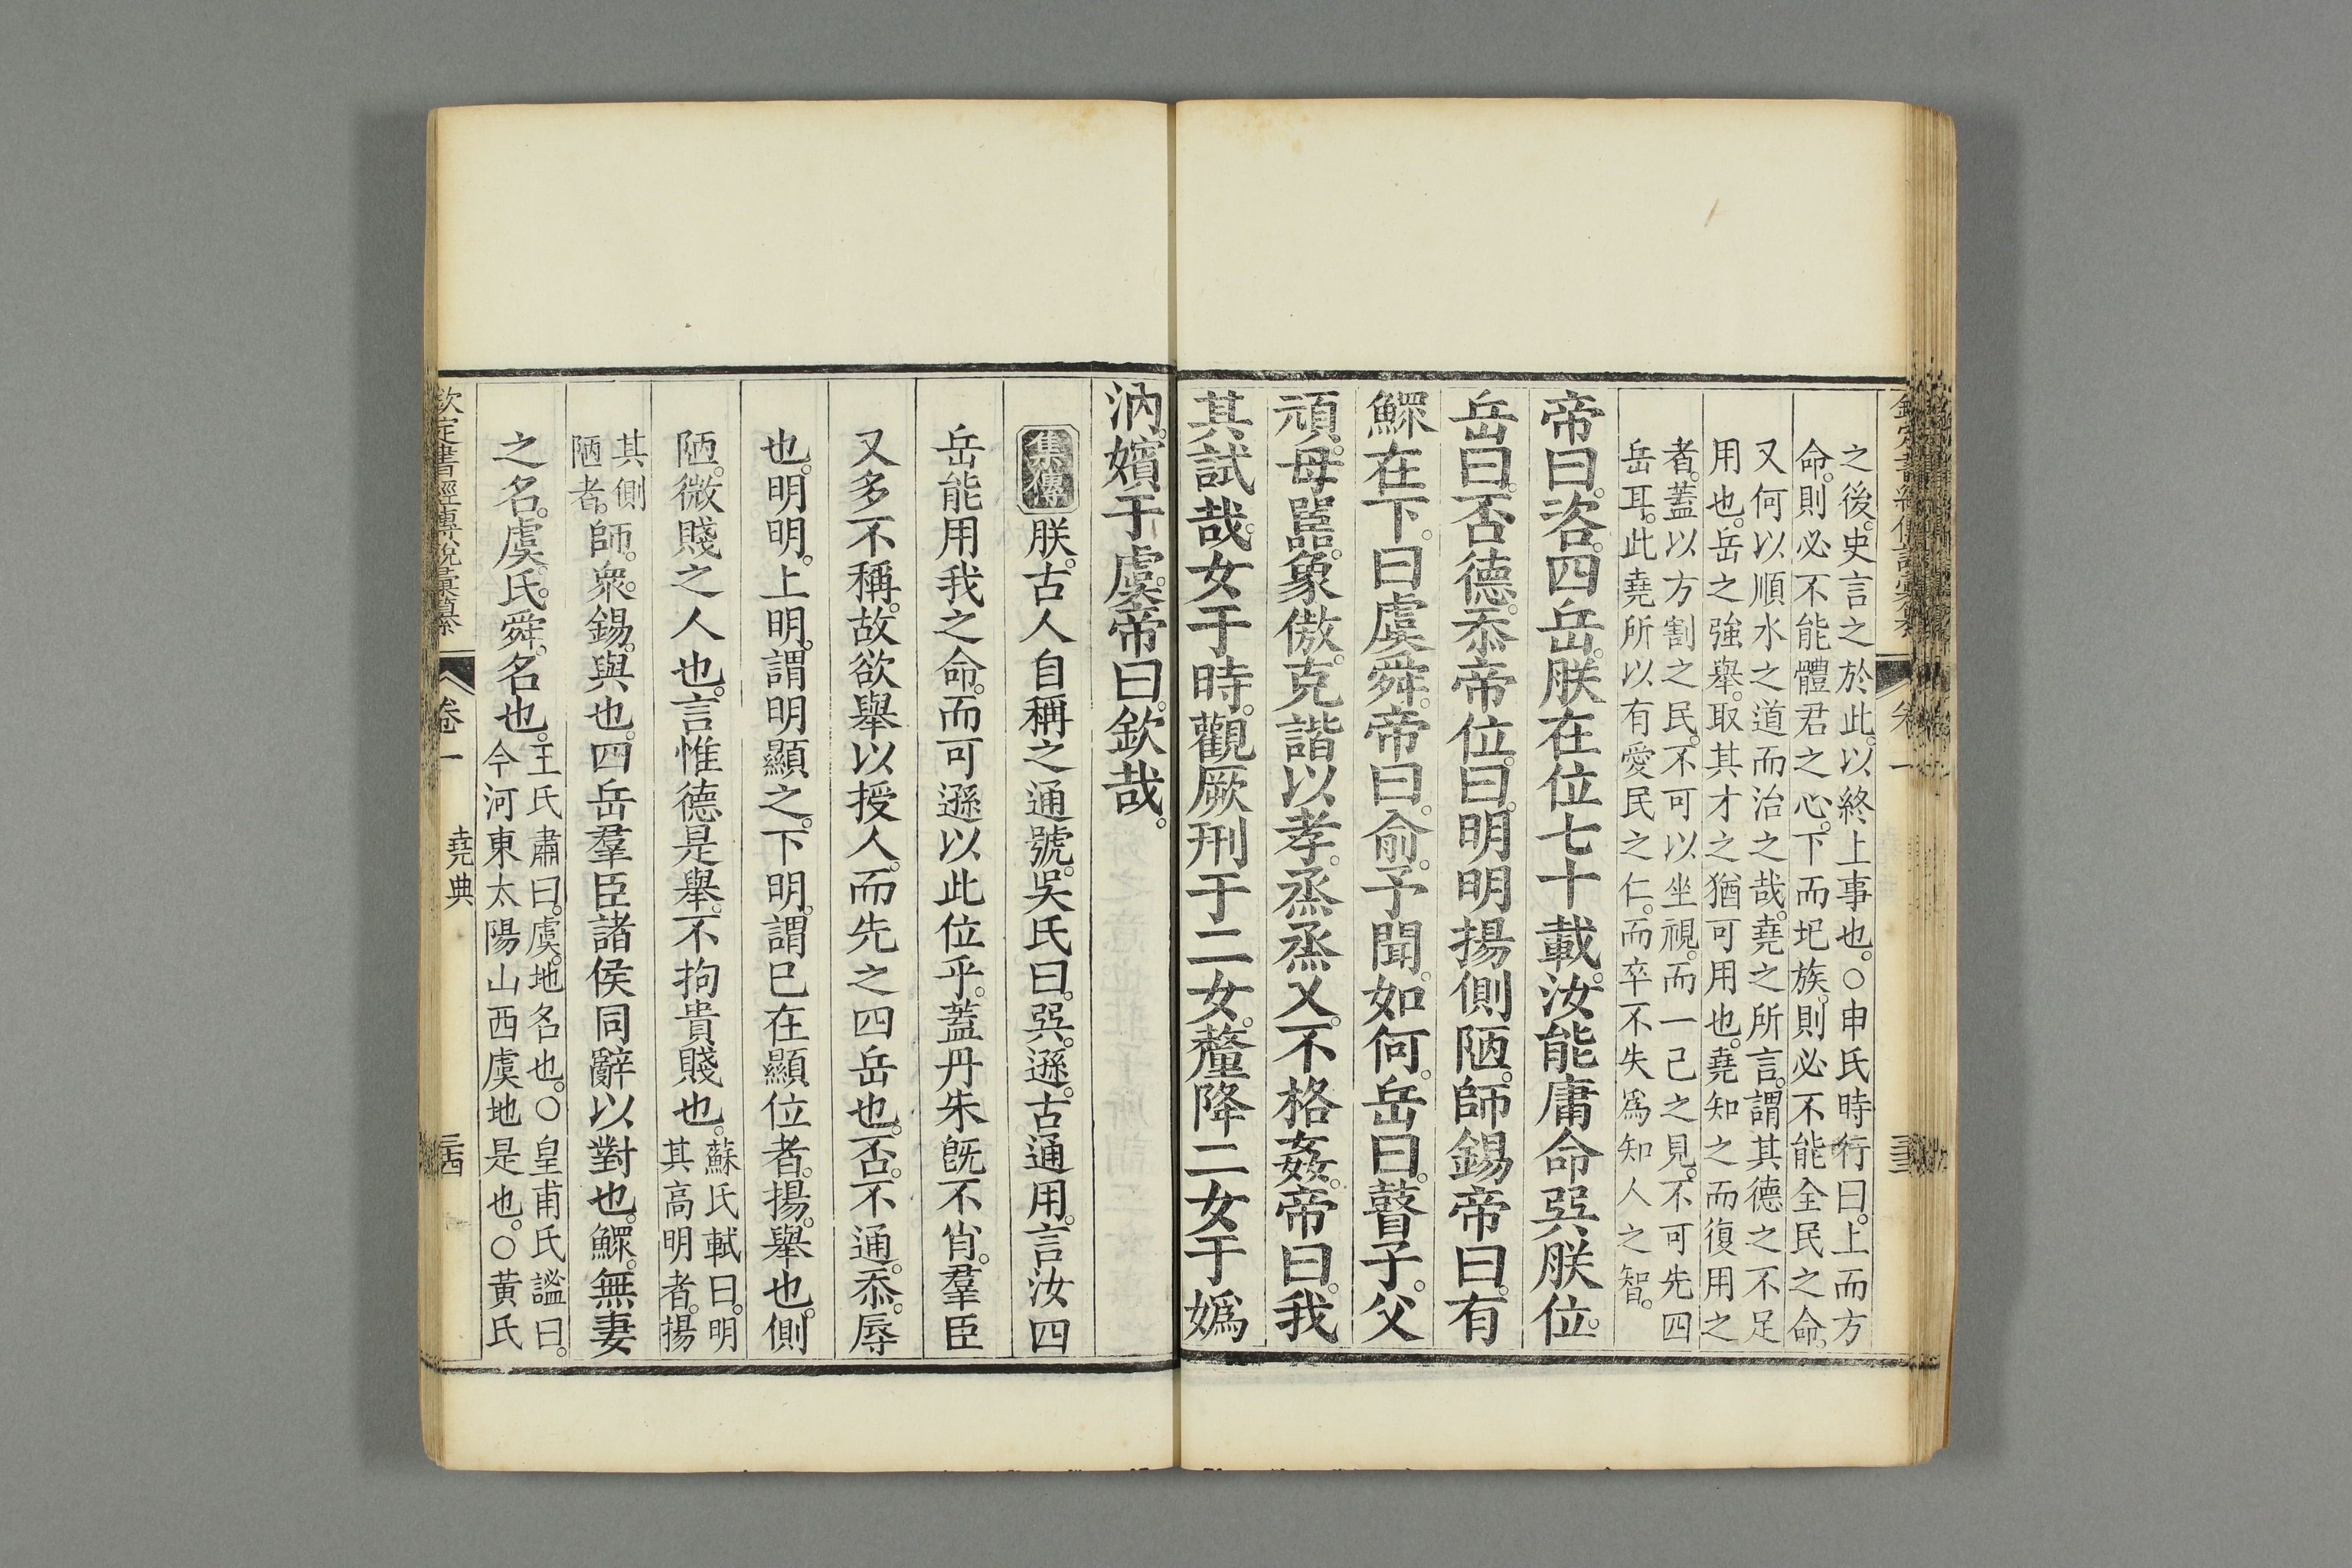 之後。史言之於此。以終上事也。○申氏時行曰。上而方
命。則必不能體君之心。下而圯族。則必不能全民之命。
又何以順水之道而治之哉。堯之所言。謂其德之不足
用也。岳之強舉。取其才之猶可用也。堯知之而復用之
者。蓋以方割之民。不可以坐視。而一己之見。不可先四
岳耳。此堯所以有愛民之仁。而卒不失爲知人之智。
帝曰。咨。四岳。朕在位七十載。汝能庸命巽朕位。
岳曰。否德。忝帝位。曰。明明揚側陋。師錫帝曰。有
鰥在下。曰虞舜。帝曰。俞。予聞。如何。岳曰。瞽子。父
頑。母嚚。象傲。克諧以孝。烝烝乂。不格姦。帝曰。我
其試哉。女于時。觀厥刑于二女。釐降二女于嬀
汭。嬪于虞。帝曰。欽哉。
集傳 朕。古人自稱之通號。吳氏曰。巽。遜。古通用。言汝四
岳能用我之命。而可遜以此位乎。蓋丹朱旣不肖。羣臣
又多不稱。故欲舉以授人。而先之四岳也。否。不通。忝。辱
也。明明。上明。謂明顯之。下明。謂已在顯位者。揚。舉也。側
陋。微賤之人也。言惟德是舉。不拘貴賤也。蘇氏軾曰。明
其高明者。揚
其側
陋者。師。衆。錫。與也。四岳羣臣諸侯同辭以對也。鰥。無妻
之名。虞。氏。舜。名也。王氏肅曰。虞。地名也。○皇甫氏謐曰。
今河東太陽山西虞地是也。○黃氏
欽定書經傳說彙纂 卷一 堯典 三四